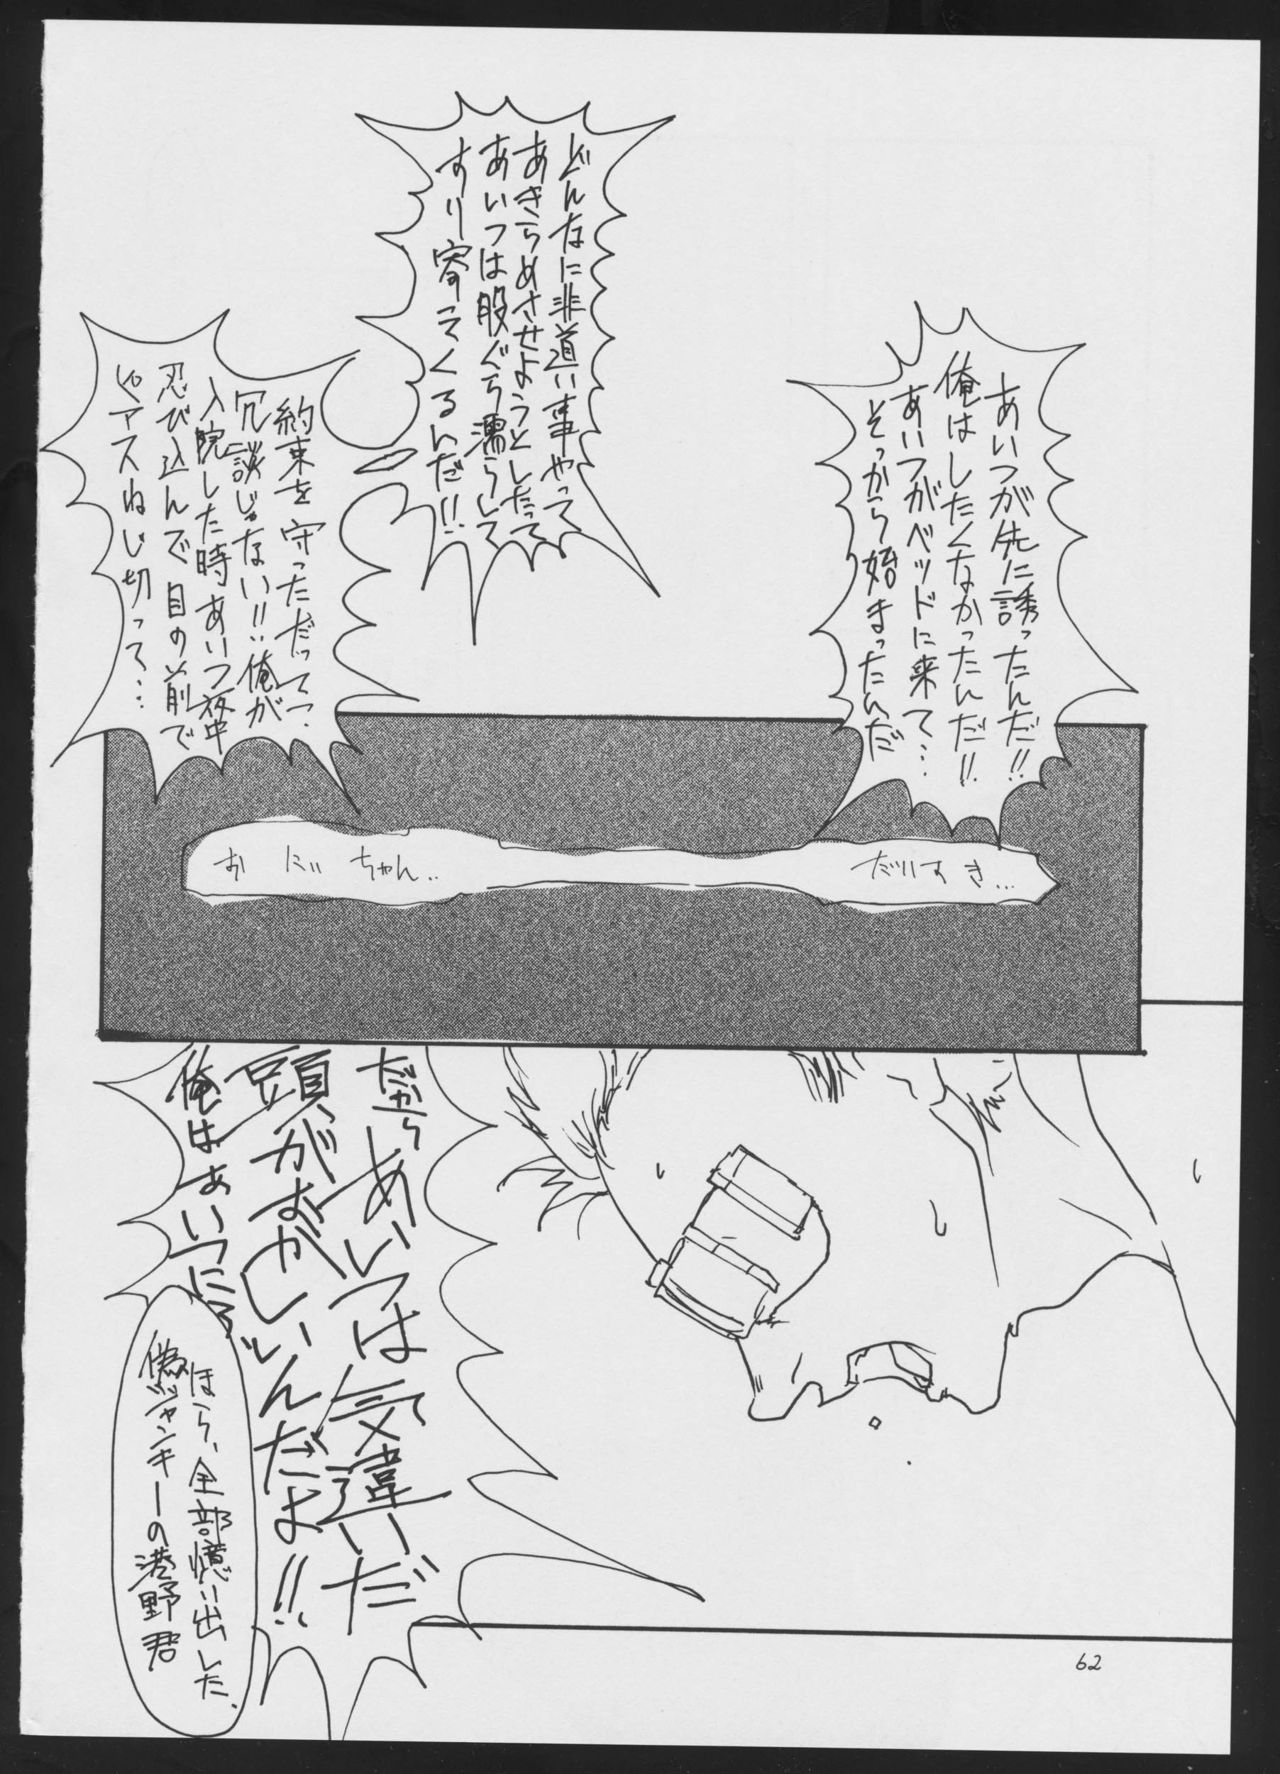 あいつが先に誘ったんだ!!
俺はしたくなかったんだ!!
あいつがベッドに来て…
そっから始まったんだ
どんなに非道い事やって
あきらめさせようとしたって
あいつは股ぐら濡らして
すり寄ってくるんだ!!
約束を守ったたって、
冗談じゃない!!俺が
入院した時あいつ夜中
忍び込んで目の前で
ピアスねじ切って…
だいすき…
おにいちゃん‥
だから
あいつは気違いだ
頭がおかしいんだよ!!
俺はあいつに
ほら、全部憶い出した
偽ジャンキーの港野君
62